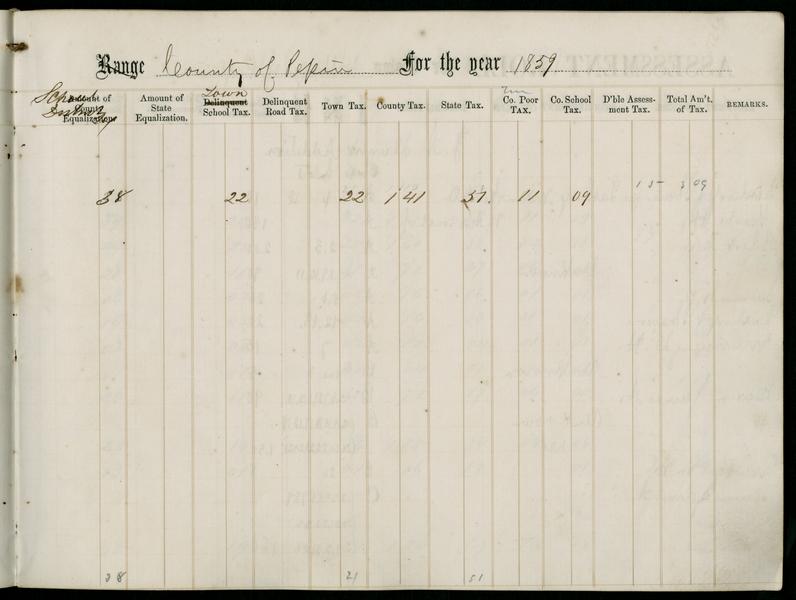 Range County of Pepin For the year 1859
School District Amount of County Equalization. Amount of State Equalization. Town Delinquent School Tax. Delinquent Road Tax. Town Tax. County Tax. State Tax. Co. Poor TAX. Co. School Tax. D'ble Assessment Tax. Total Am't. of Tax. REMARKS.
15 3 09
38 22 22 1 41 51. 11 09
38 21 51